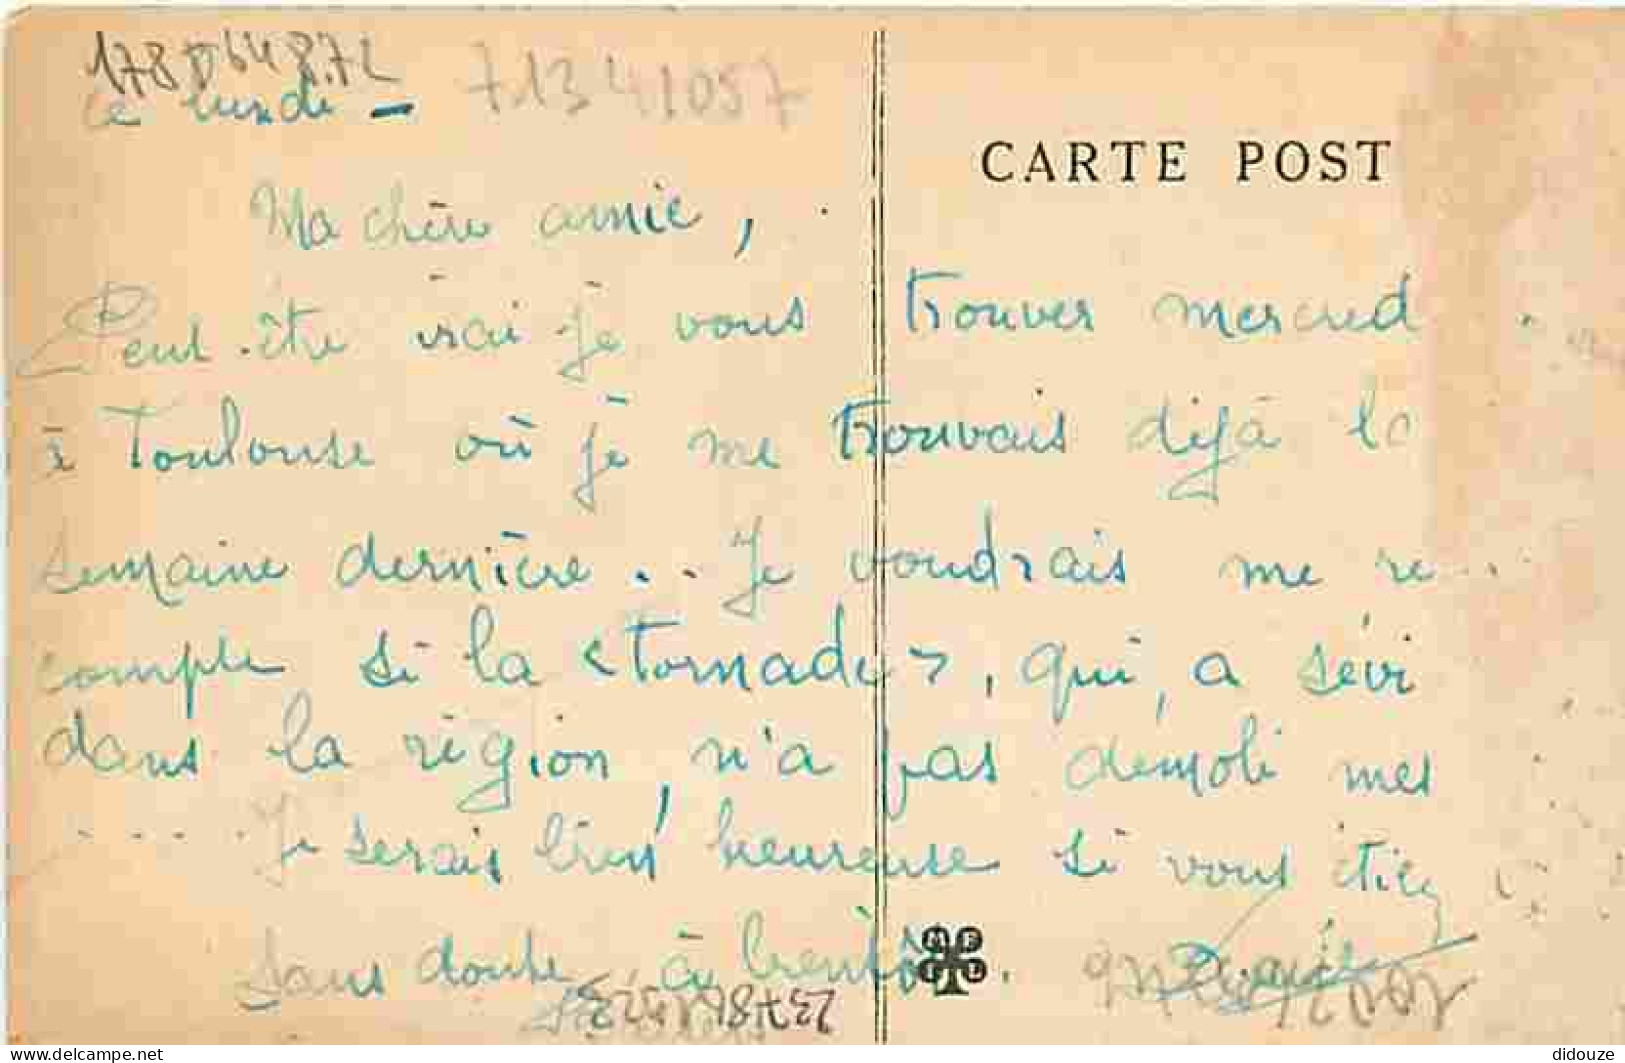 178 D 648.7L 71341057
ce lundi -
CARTE POST
Ma chère amie,
Peut-être irai-je vous trouver mercred
à Toulouse où je me trouvais déjà la
semaine dernière.. Je voudrais me re
compte si la <Tornade>, qui, a sévi
dans la région, n'a pas démoli mes
Je serais bien heureuse si vous étiez
sans doute, à bientôt.
www.delcampe.net
didouze